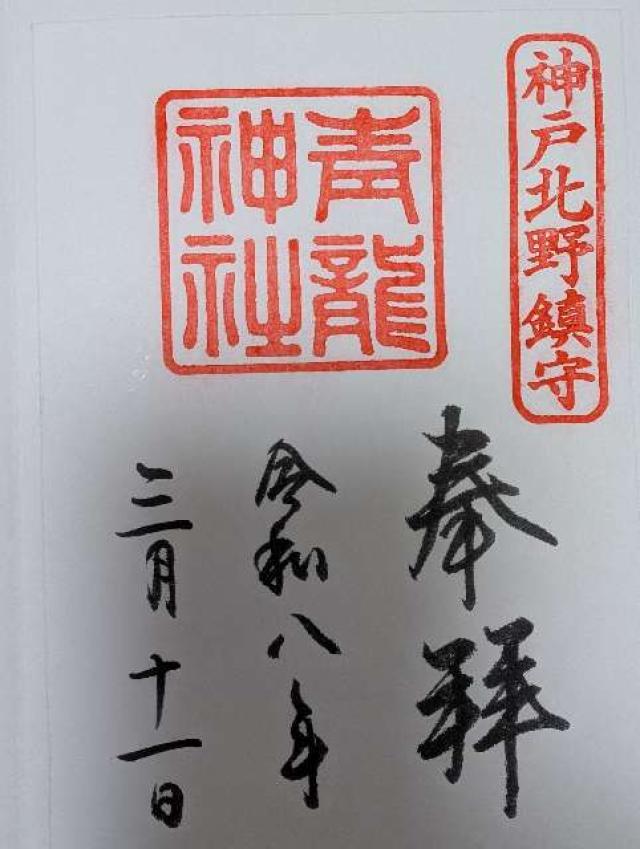 神戸北野鎮守
奉拝
青龍
神社
令和八年
三月十一日